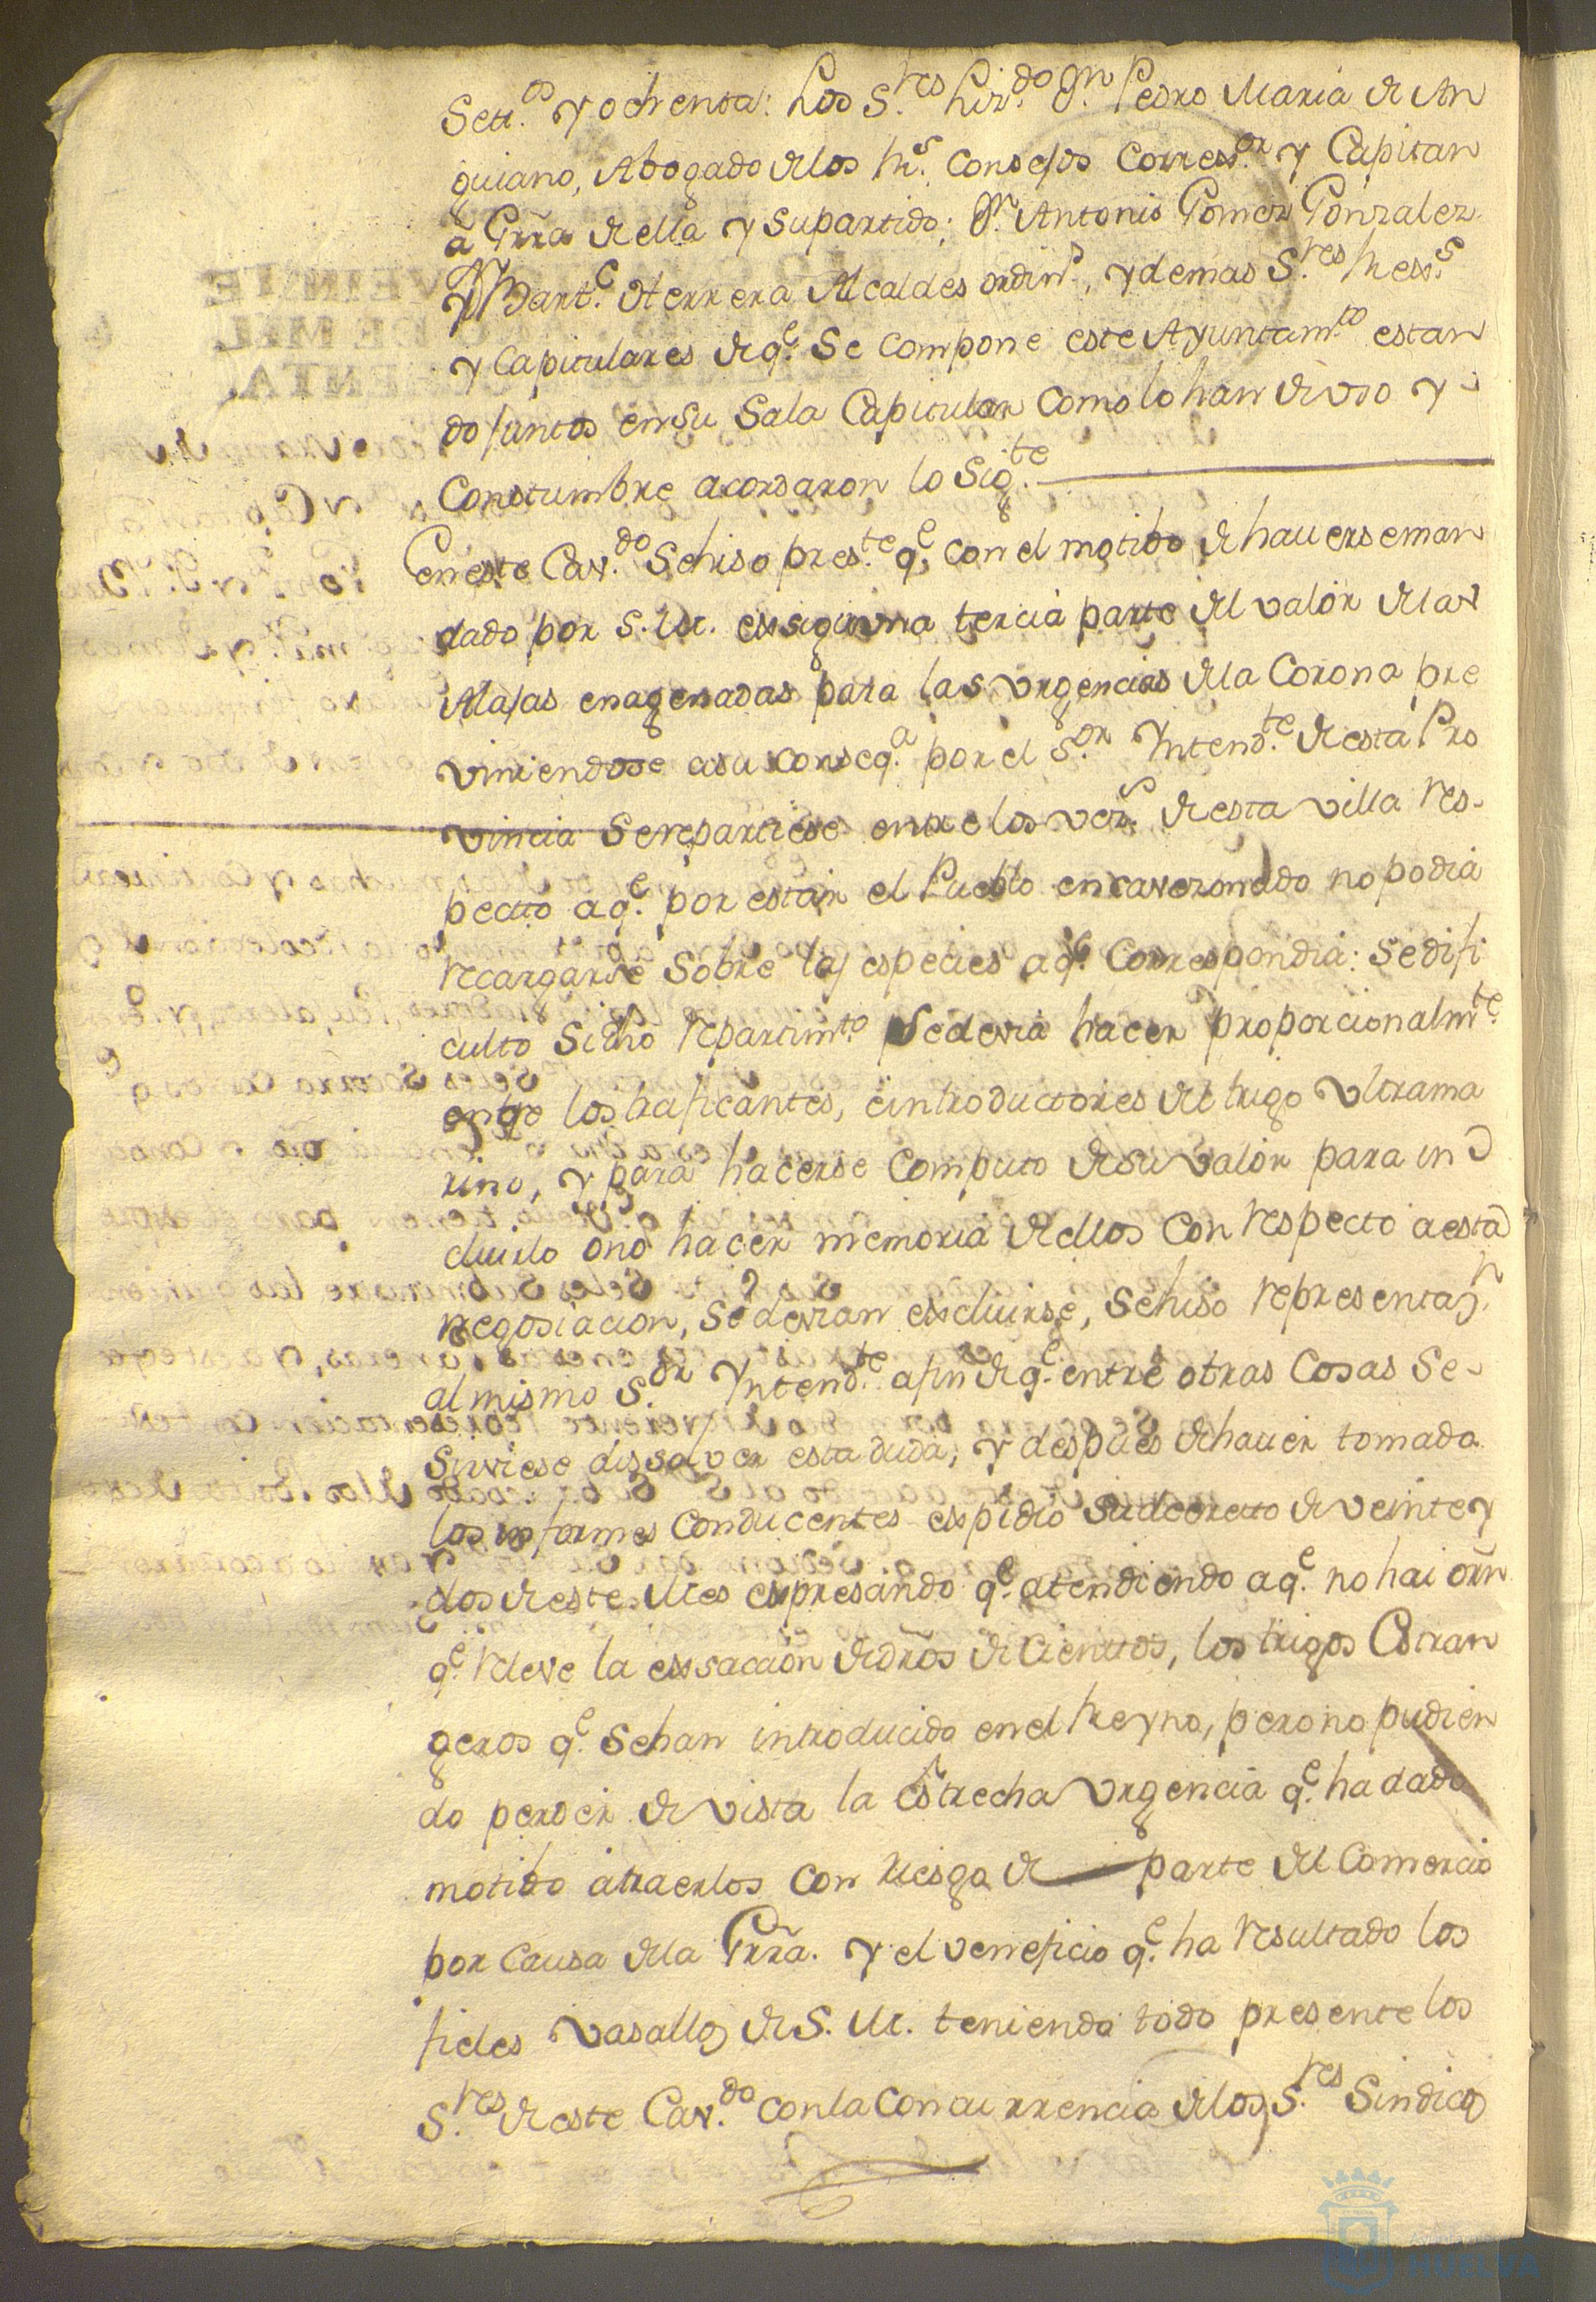 Setz.os y ochenta: Los S.res Liz.do Dn. Pedro Maria de An
guiano, Abogado de los Rs. Consejos Correx.or y Capitan
a Grra de ella y su partido; Dn. Antonio Gomez Gonzalez
y Dn Bart.e Herrera Alcaldes ordin.s, y demas S.res Rexs.
y Capitulares de q.e se compone este Ayuntam.to estan
do juntos en su Sala Capitular como lo han de uso y
Constumbre acordaron lo Sig.te
En este Cav.do se hiso pres.te q.e con el motibo de hauerse man
dado por S. M. exsigir una tercia parte del valor de las
Alajas enagenadas para las vrgencias de la Corona pre
viniendose a su conseq.a por el S.or Yntend.te de esta Pro
vincia se repartiese entre los vez.s de esta villa res-
pecto a q.e por estar el Pueblo encavezonado no podia
recargarse sobre las especies a q.e correspondia: se difi
culto si dho repartim.to se devia hacer proporcionalm.te
entre los traficantes, e introductores del trigo vltrama
rino, y para hacerse computo de su valor para in
cluirlo o no hacer memoria de ellos con respecto a esta
negosiacion, se devian excluirse, se hiso representaz.n
al mismo S.or Yntend.te a fin de q.e entre otras cosas se
sirviese dissolver esta duda, y despues de hauer tomado
los informes conducentes expidio su decreto de veinte y
dos de este Mes expresando q.e atendiendo a q.e no hai orn
q.e releve la exsaccion de dros de Cientos, los trigos Estran
geros q.e se han introducido en el Reyno, pero no pudien
do perder de vista la estrecha vrgencia q.e ha dado
motibo a traerlos con riesgo de parte del Comercio
por causa de la Grra. y el veneficio q.e ha resultado los
fieles vasallos de S. M. teniendo todo presente los
S.res de este Cav.do con la concurrencia de los S.res Sindicos
HUELVA